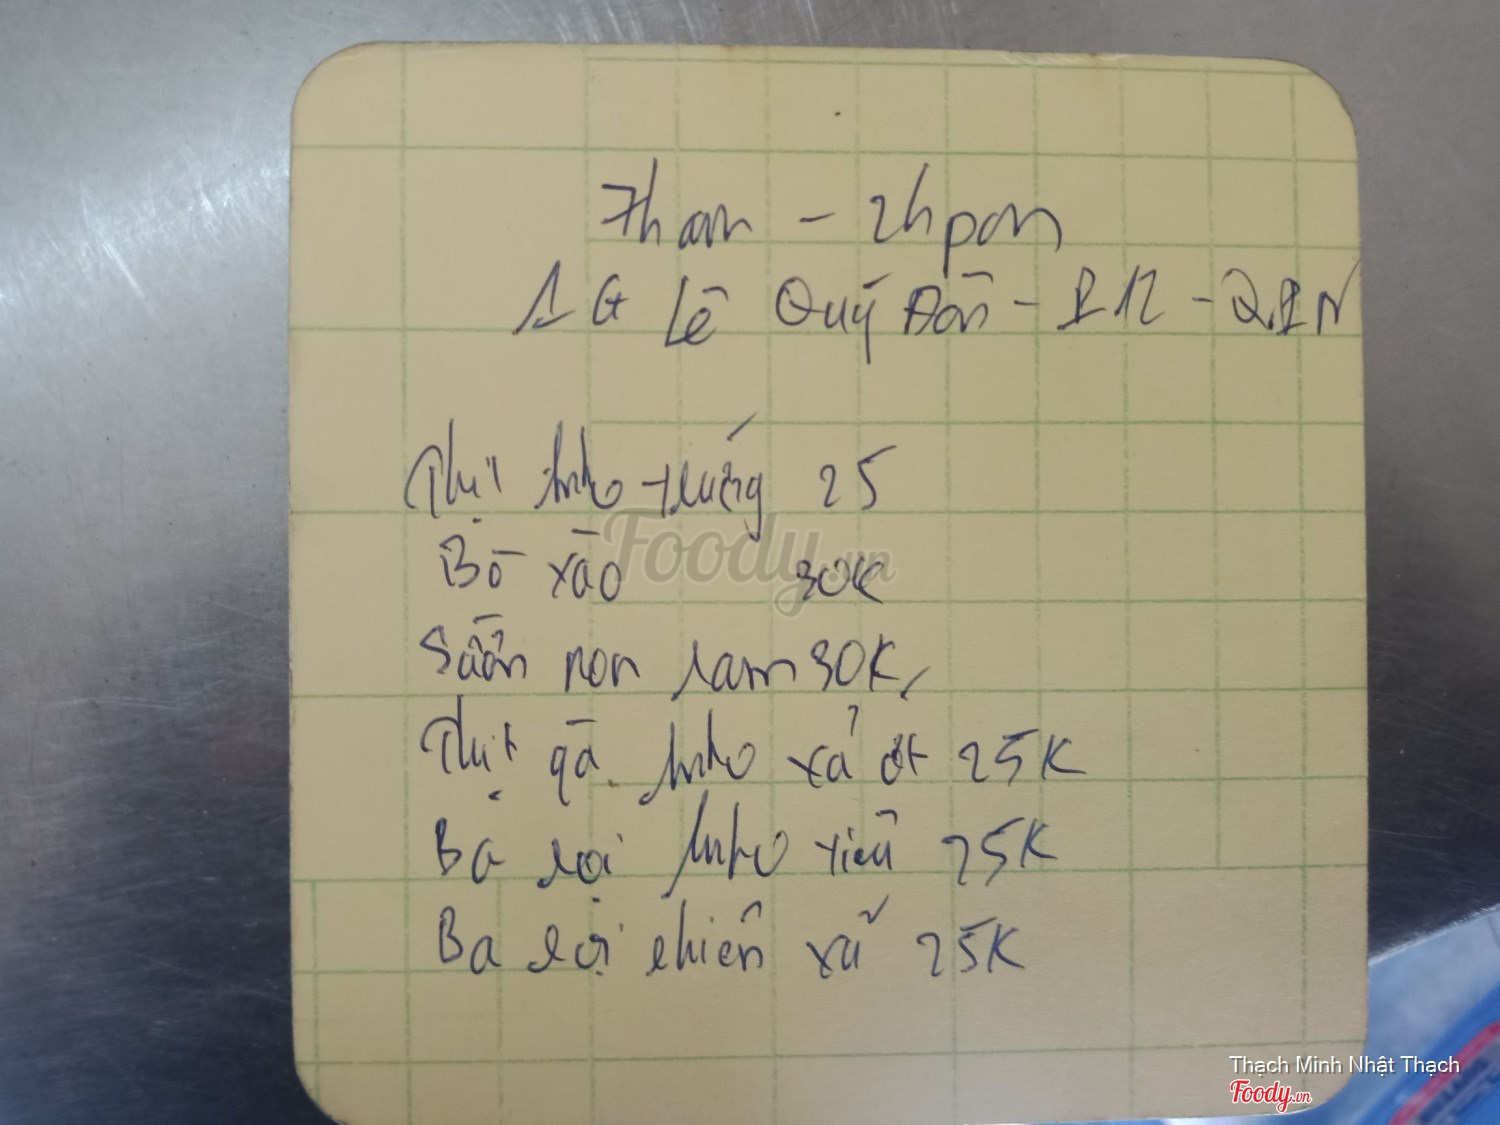 1G Lê Quý Đôn - P12 - Q.PN
Thịt kho trứng 25
Bò xào 30K
Sườn non ram 30K
Thịt gà kho xả ớt 25K
Ba rọi kho tiêu 25K
Ba rọi chiên xả 25K
Foody.vn
Thạch Minh Nhật Thạch
Foody.vn